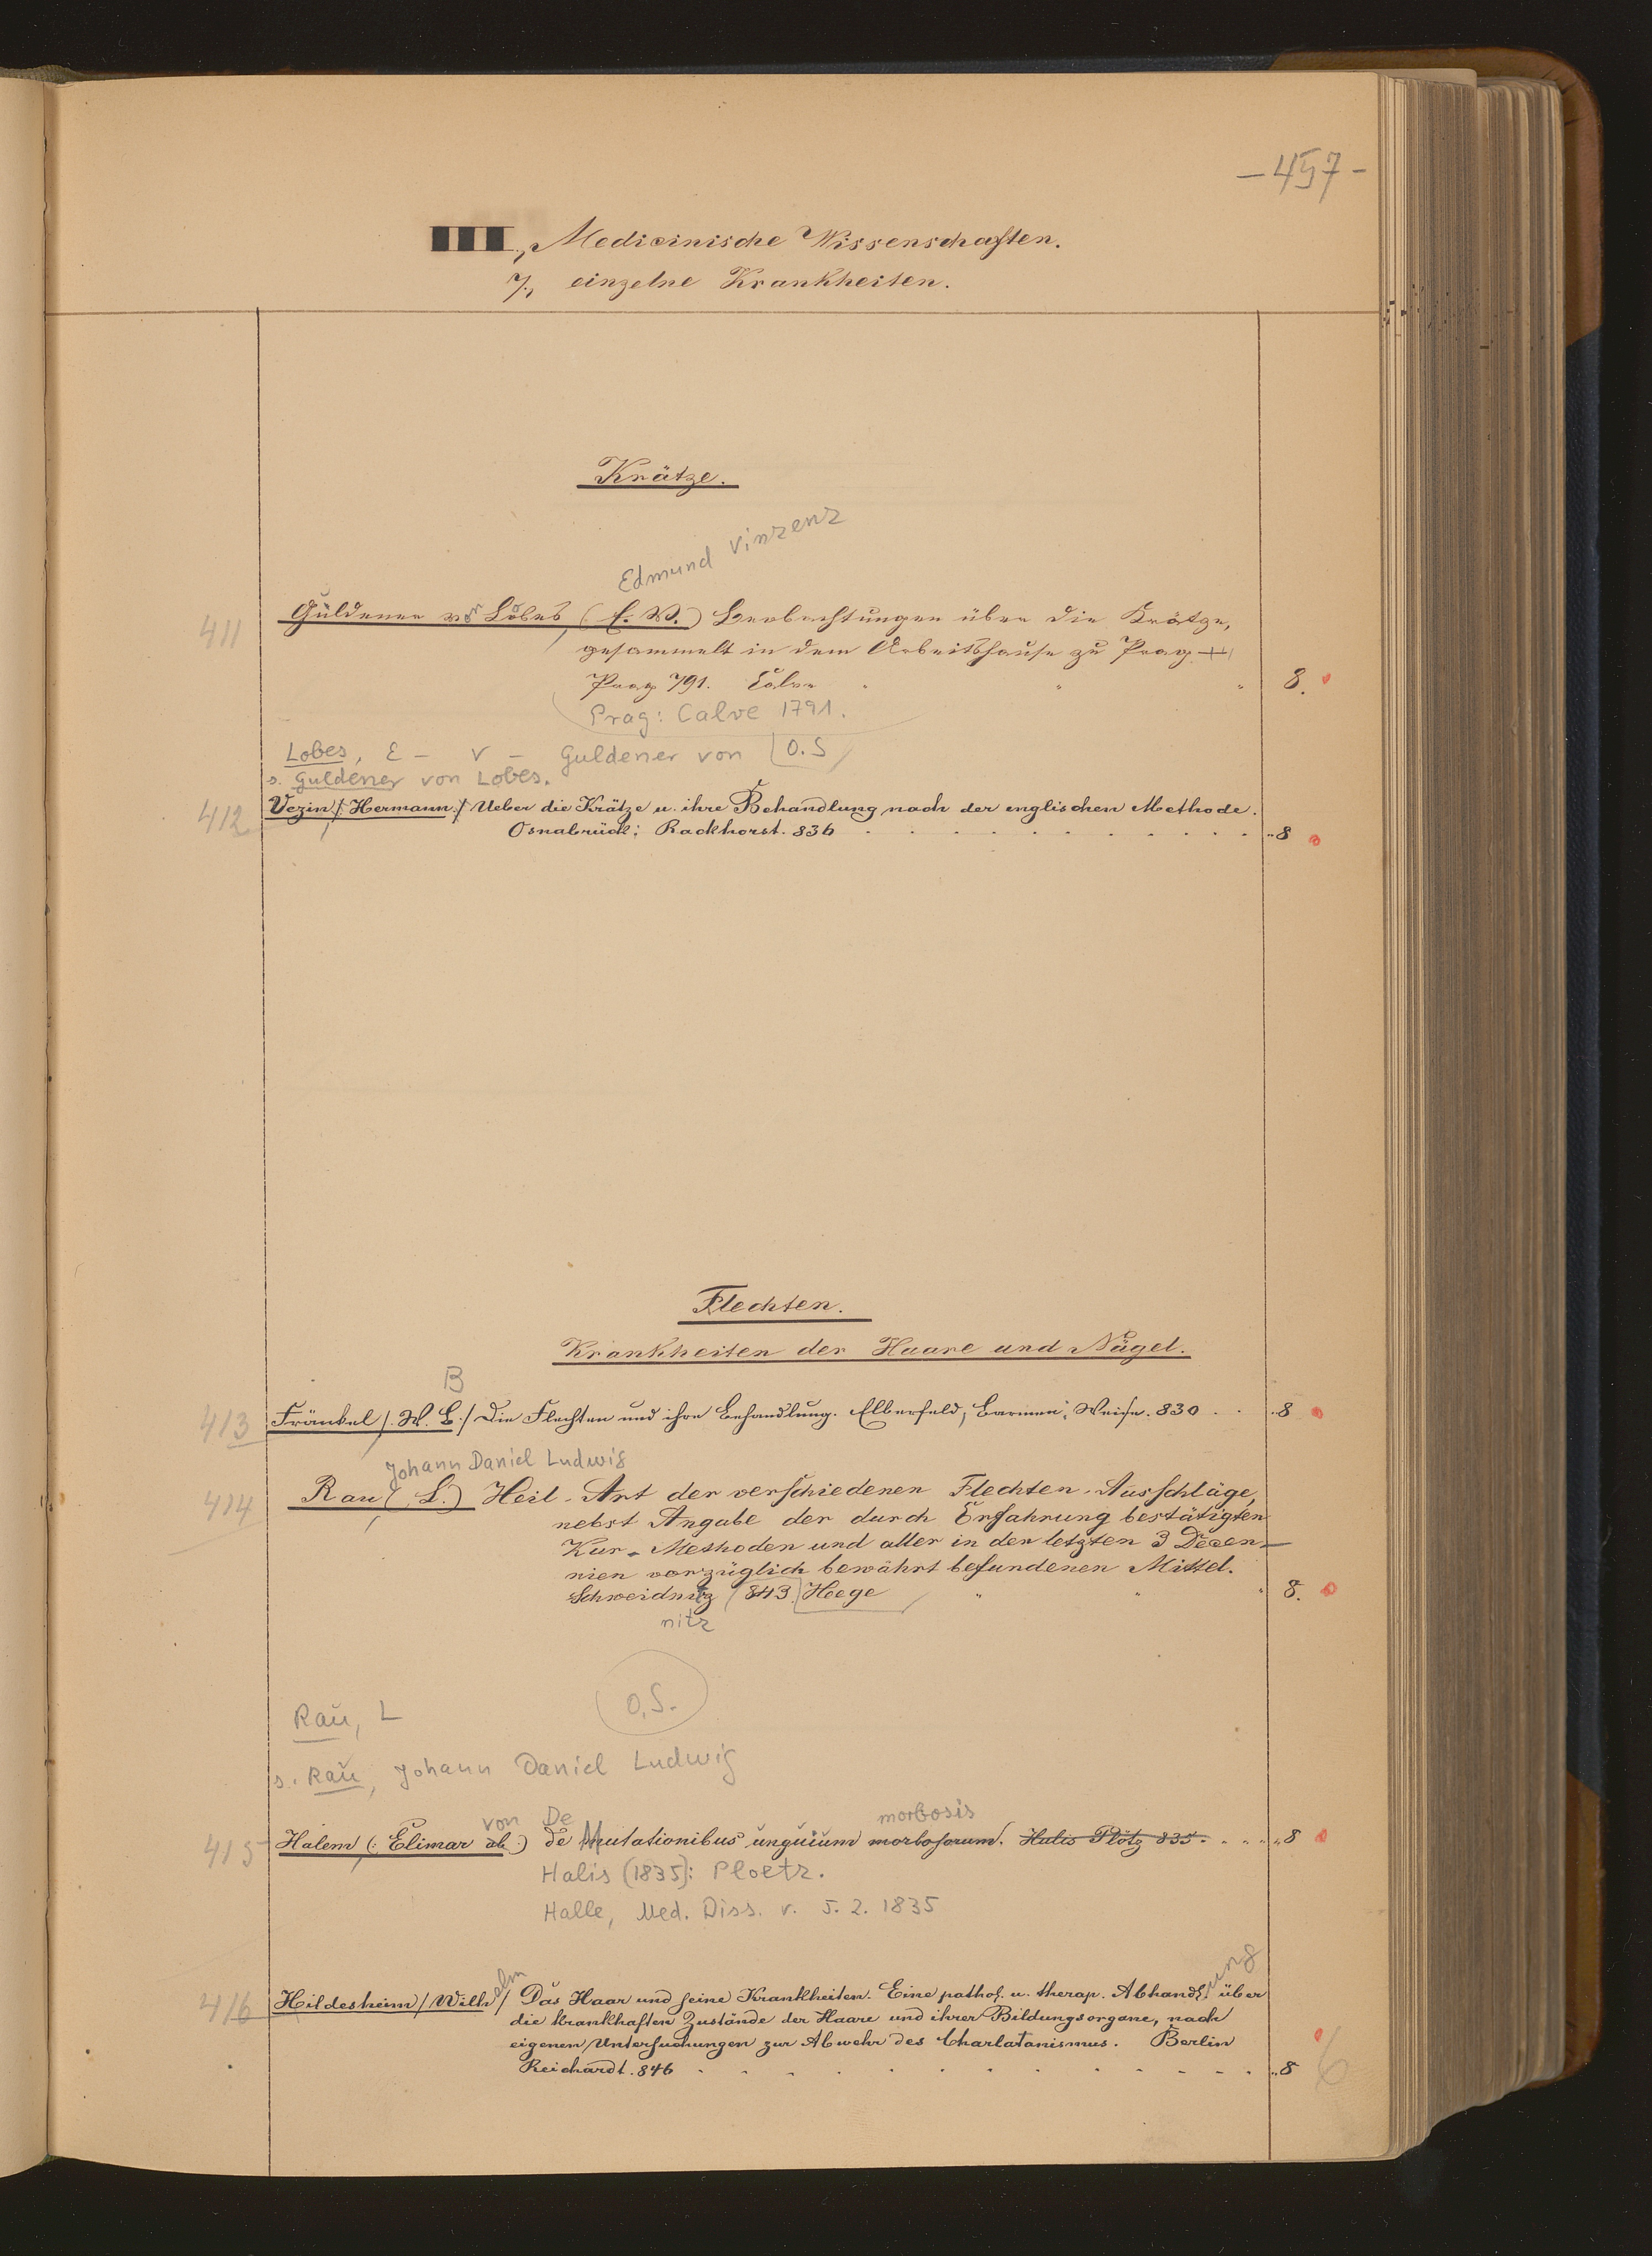 – 457 –
III., Medicinische Wissenschaften.
7., einzelne Krankheiten.
Krätze.
Edmund Vinzenz
411 Guldener von Lobes (E. V.) Beobachtungen über die Krätze,
gesammelt in dem Arbeitshause zu Prag
Prag 791. Calve " " " 8.
Prag: Calve 1791.
Lobes, E – V – Guldener von O.S
s. Guldener von Lobes.
412 Vezin /: Hermann :/ Ueber die Krätze u. ihre Behandlung nach der englischen Methode.
Osnabrück; Rackhorst. 836 . . . . . . . . . . „8
Flechten.
Krankheiten der Haare und Nägel.
B
413 Fränkel /. W. B./ Die Flechten und ihre Behandlung. Elberfeld, Barmen; Weise. 830 . . . 8
Johann Daniel Ludwig
414 Rau (L.) Heil-Art der verschiedenen Flechten-Ausschläge,
nebst Angabe der durch Erfahrung bestätigten
Kur-Methoden und aller in den letzten 3 Decen-
nien vorzüglich bewährt befundenen Mittel.
Schweidnitz 843. Heege " " " 8.
nitz
O.S.
Rau, L
s. Rau, Johann Daniel Ludwig
von De morbosis
415 Halem (: Elimar ab :) de Mutationibus unguium morbosorum. Halis Plötz 835. . . . „8
Halis (1835): Ploetz.
Halle, Med. Diss. v. 5. 2. 1835
elm ung
416 Hildesheim / Wilh / Das Haar und seine Krankheiten. Eine pathol. u. therap. Abhandl. über
die krankhaften Zustände der Haare und ihrer Bildungsorgane, nach
eigenen Untersuchungen zur Abwehr des Charlatanismus. Berlin
Reichardt. 846 . . . . . . . . . . . . „8
6